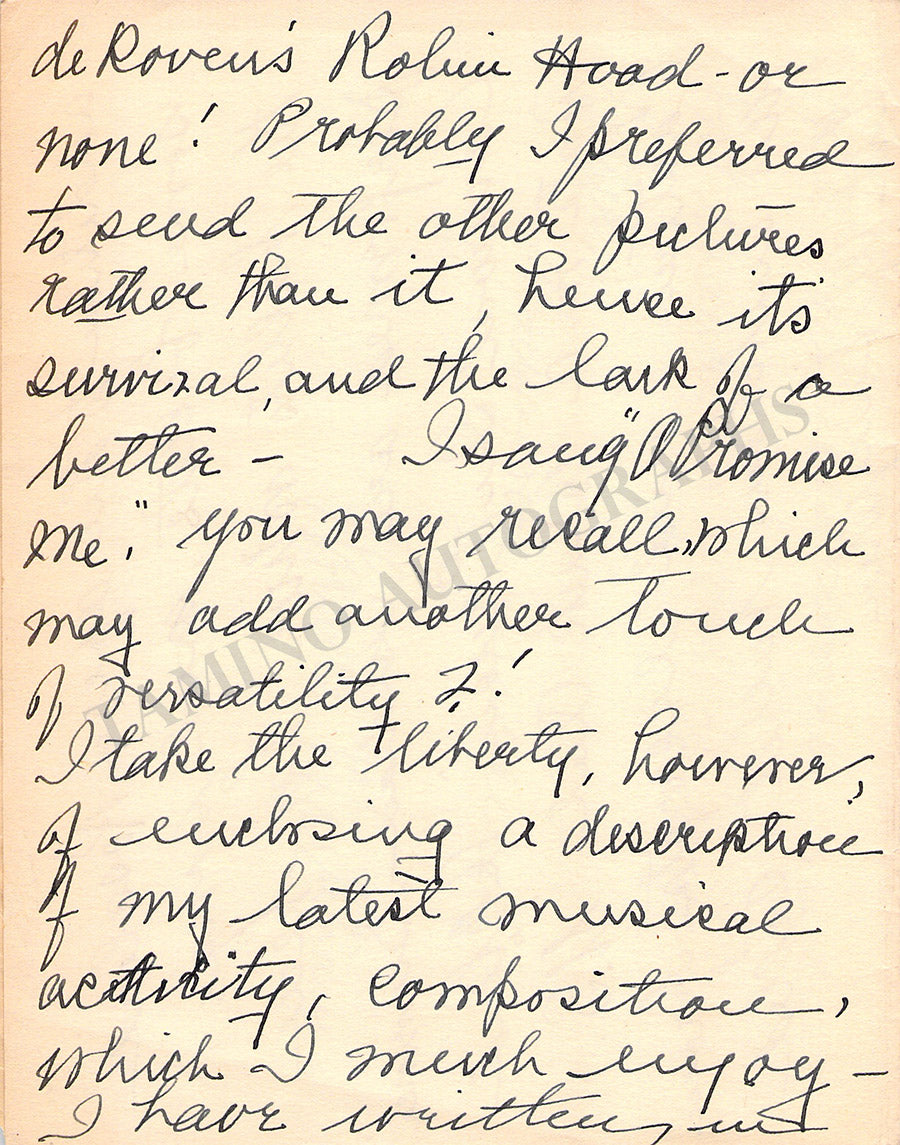 de Koven's Robin Hood - or
none! Probably I preferred
to send the other pictures
rather than it, hence its
survival, and the lack of a
better - I sang "O Promise
Me." you may recall, which
may add another touch
of versatility?!
I take the liberty, however,
of enclosing a description
of my latest musical
activity, composition,
which I much enjoy -
I have written, in
TAMINO AUTOGRAPHS